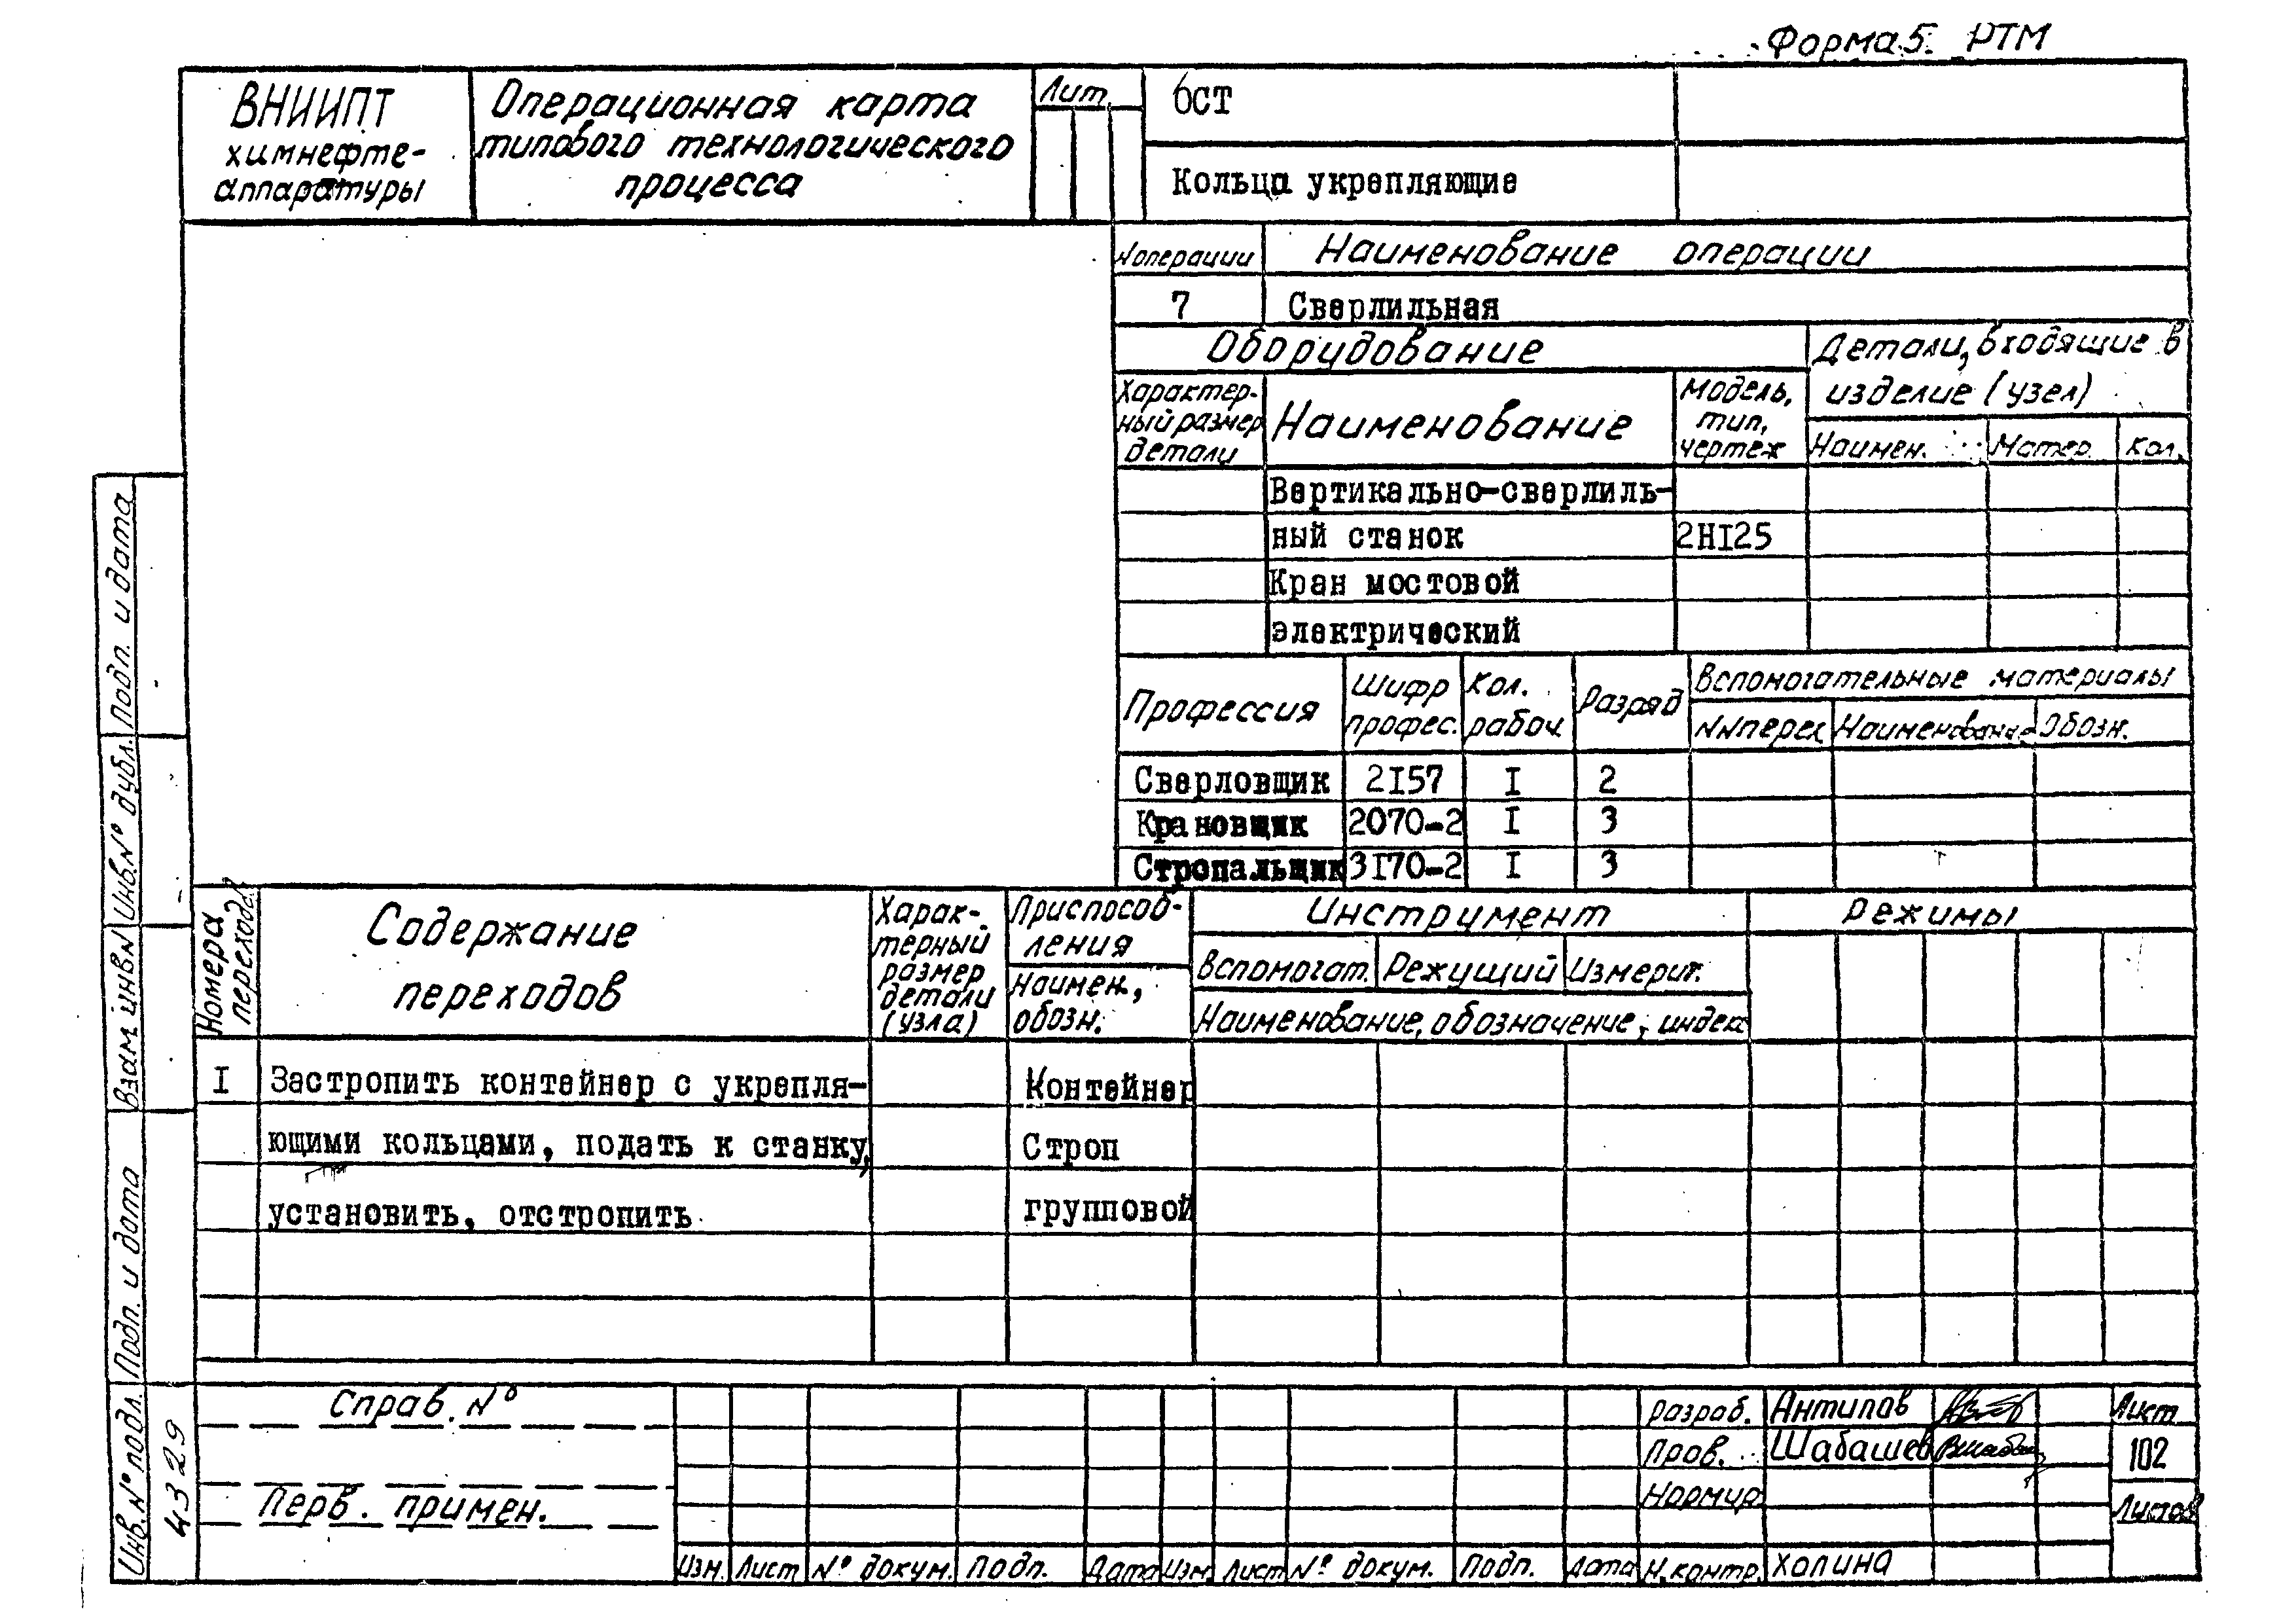 Форма 5. РТМ
ВНИИПТ
химнефте-
аппаратуры
Операционная карта
типового технологического
процесса
Лит.
6ст
Кольца укрепляющие
№операции
Наименование операции
7
Сверлильная
Оборудование
Детали, входящие в
изделие (узел)
Характер-
ный размер
детали
Наименование
Модель,
тип,
чертеж
Наимен.
Матер.
Кол.
Вертикально-сверлиль-
ный станок
2HI25
Кран мостовой
электрический
Профессия
Шифр
профес.
Кол.
рабоч.
Разряд
Вспомогательные материалы
NNперех
Наименование
Обозн.
Сверловщик 2I57 I 2
Крановщик 2070-2 I 3
Стропальщик 3I70-2 I 3
Номера
переходов
Содержание
переходов
Харак-
терный
размер
детали
(узла)
Приспособ-
ления
Наимен.,
обозн.
Инструмент
Вспомогат.
Режущий
Измерит.
Наименование, обозначение, индекс
Режимы
I
Застропить контейнер с укрепля-
ющими кольцами, подать к станку,
установить, отстропить
Контейнер
Строп
групповой
Справ. №
Перв. примен.
Изм. Лист № докум. Подп. Дата Изм Лист № докум. Подп. Дата
Разраб. Антипов
Пров. Шабашев
Нормир
Н.контр. Холина
Лист
102
Листов
Подп. и дата
Инв.№ дубл.
Взам инв№
Подп. и дата
Инв.№ подл.
4329